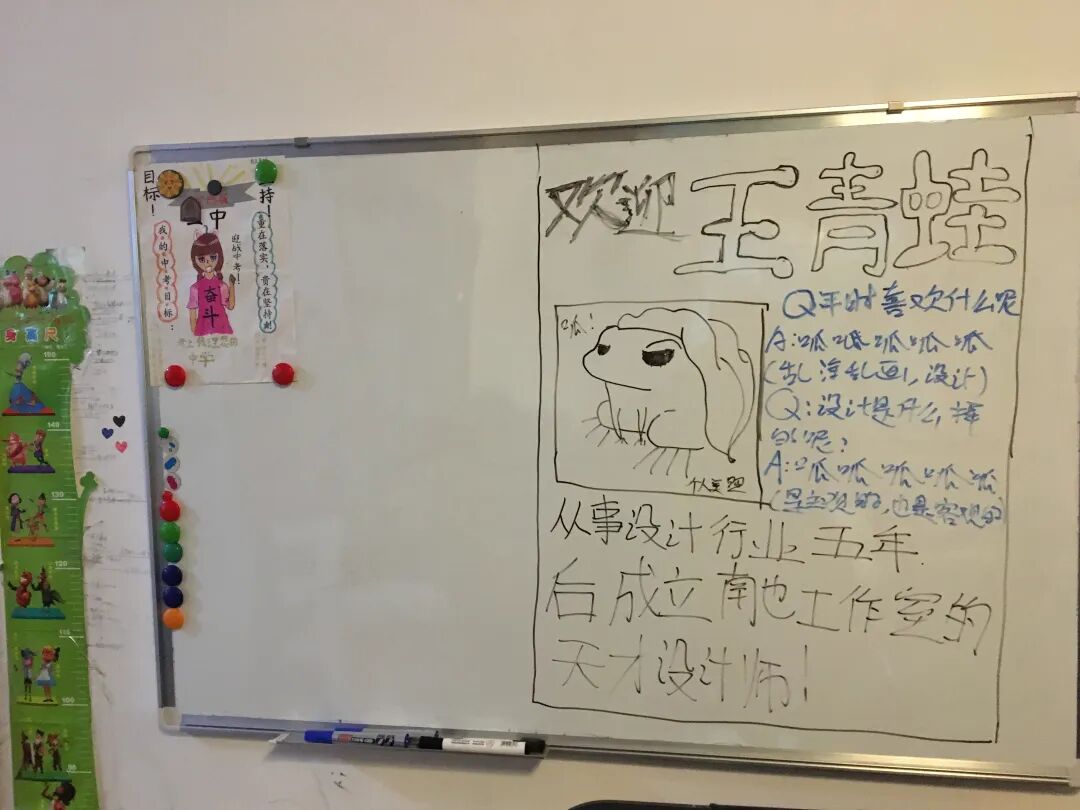 目标！
坚持！
一中
迎战中考！
我的中考目标：
重在落实，贵在坚持刻
奋斗
考上我理想的
中学
身高尺
150
140
130
120
110
100
90
欢迎 王青蛙
呱！
个人写照
Q平时喜欢什么呢
A:呱呱呱呱呱
(乱浮乱画，设计)
Q:设计是什么样
的呢？
A:呱呱呱呱呱
(是主观的，也是客观的)
从事设计行业五年
后成立南也工作室的
天才设计师！